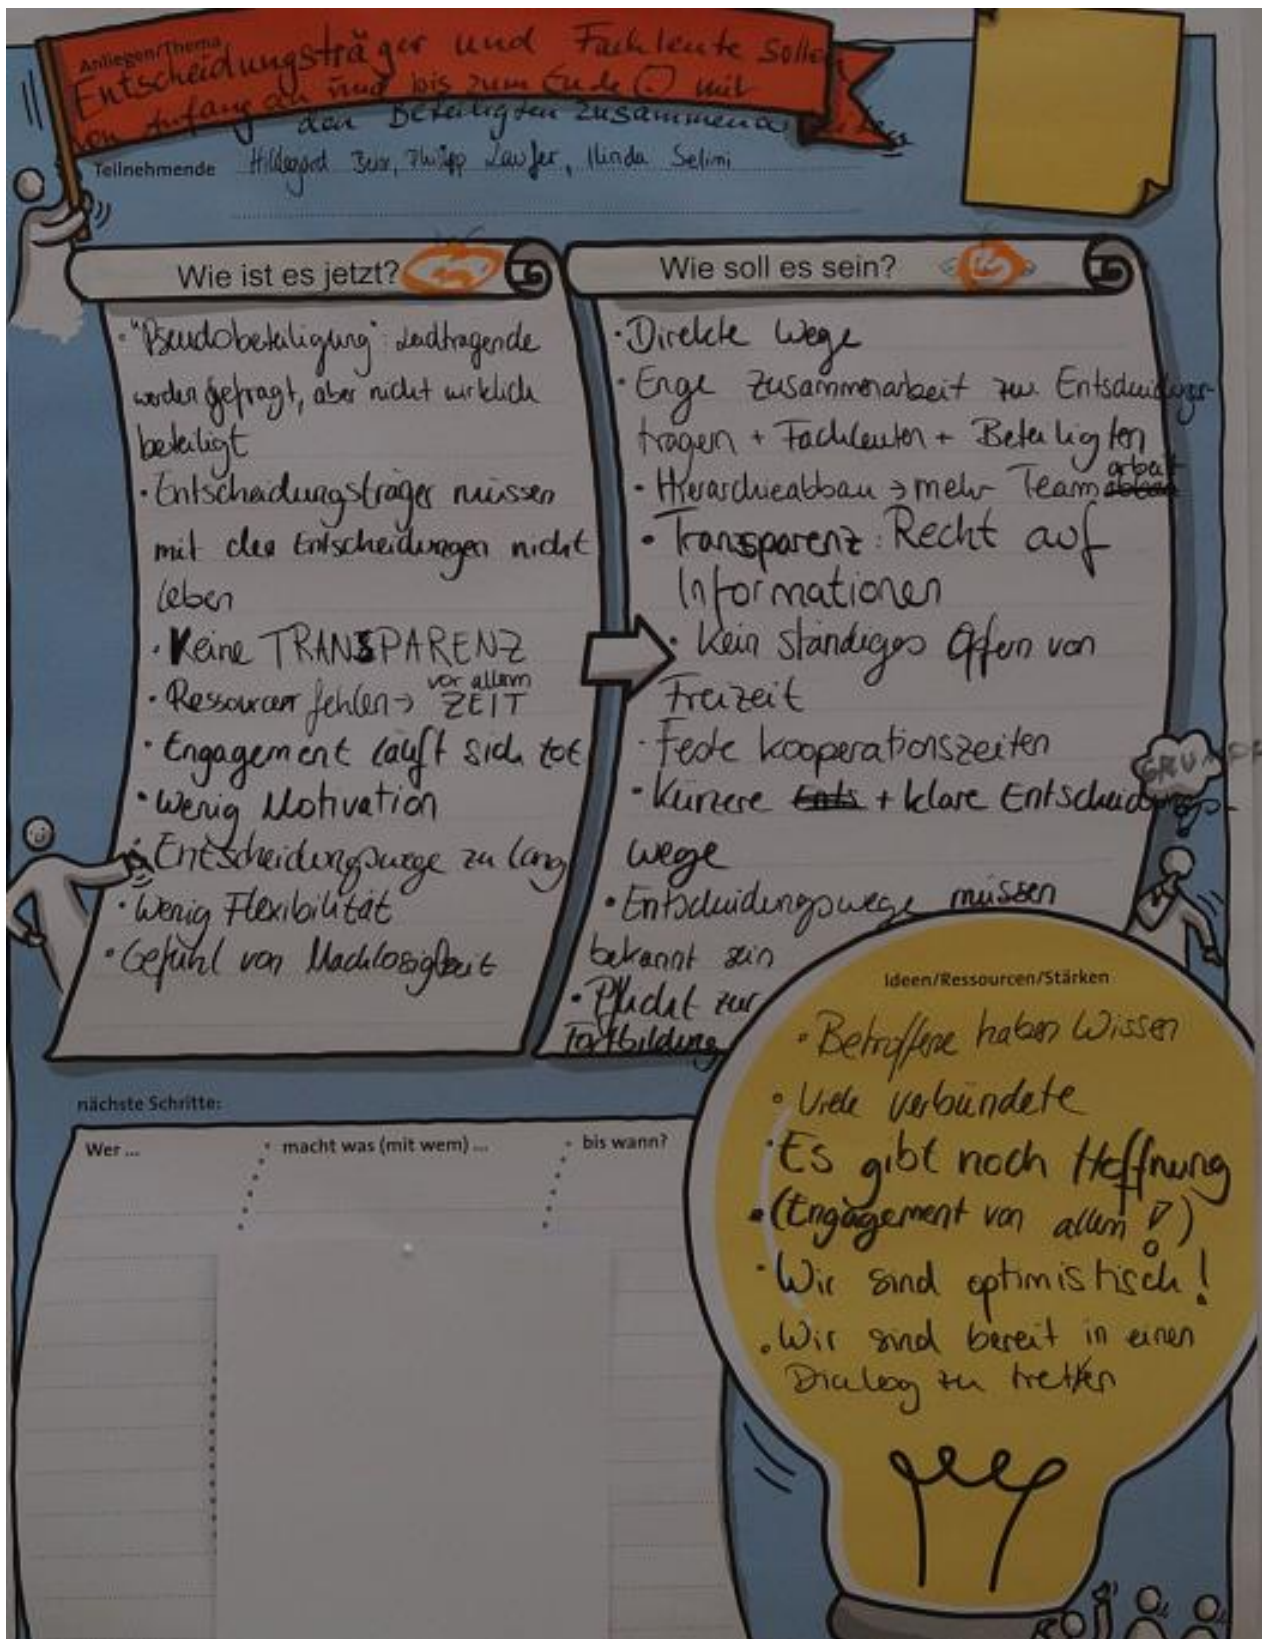 Anliegen/Thema
Entscheidungsträger und Fachleute sollen
von Anfang an und bis zum Ende mit
den Beteiligten zusammen
Teilnehmende Hildegard Philipp Laufer, Ilinda Selimi
Wie ist es jetzt?
• "Pseudobeteiligung": Leidtragende
werden gefragt, aber nicht wirklich
beteiligt
• Entscheidungsträger müssen
mit den Entscheidungen nicht
leben
• Keine TRANSPARENZ
• Ressourcen fehlen → vor allem ZEIT
• Engagement läuft sich tot
• Wenig Motivation
• Entscheidungswege zu lang
• Wenig Flexibilität
• Gefühl von Machlosigkeit
Wie soll es sein?
• Direkte Wege
• Enge Zusammenarbeit zw. Entscheidungs-
trägern + Fachleuten + Beteiligten
• Hierarchieabbau → mehr Teamarbeit
• Transparenz: Recht auf
Informationen
• Kein ständiges Opfern von
Freizeit
• Feste Kooperationszeiten
• Kürzere + klare Entscheidungs-
wege
• Entscheidungswege müssen
bekannt sein
• Pflicht zur
Fortbildung
Ideen/Ressourcen/Stärken
• Betroffene haben Wissen
• Viele verbündete
• Es gibt noch Hoffnung
• (Engagement von allem !)
• Wir sind optimistisch!
• Wir sind bereit in einen
Dialog zu treten
nächste Schritte:
Wer ... macht was (mit wem) ... bis wann?